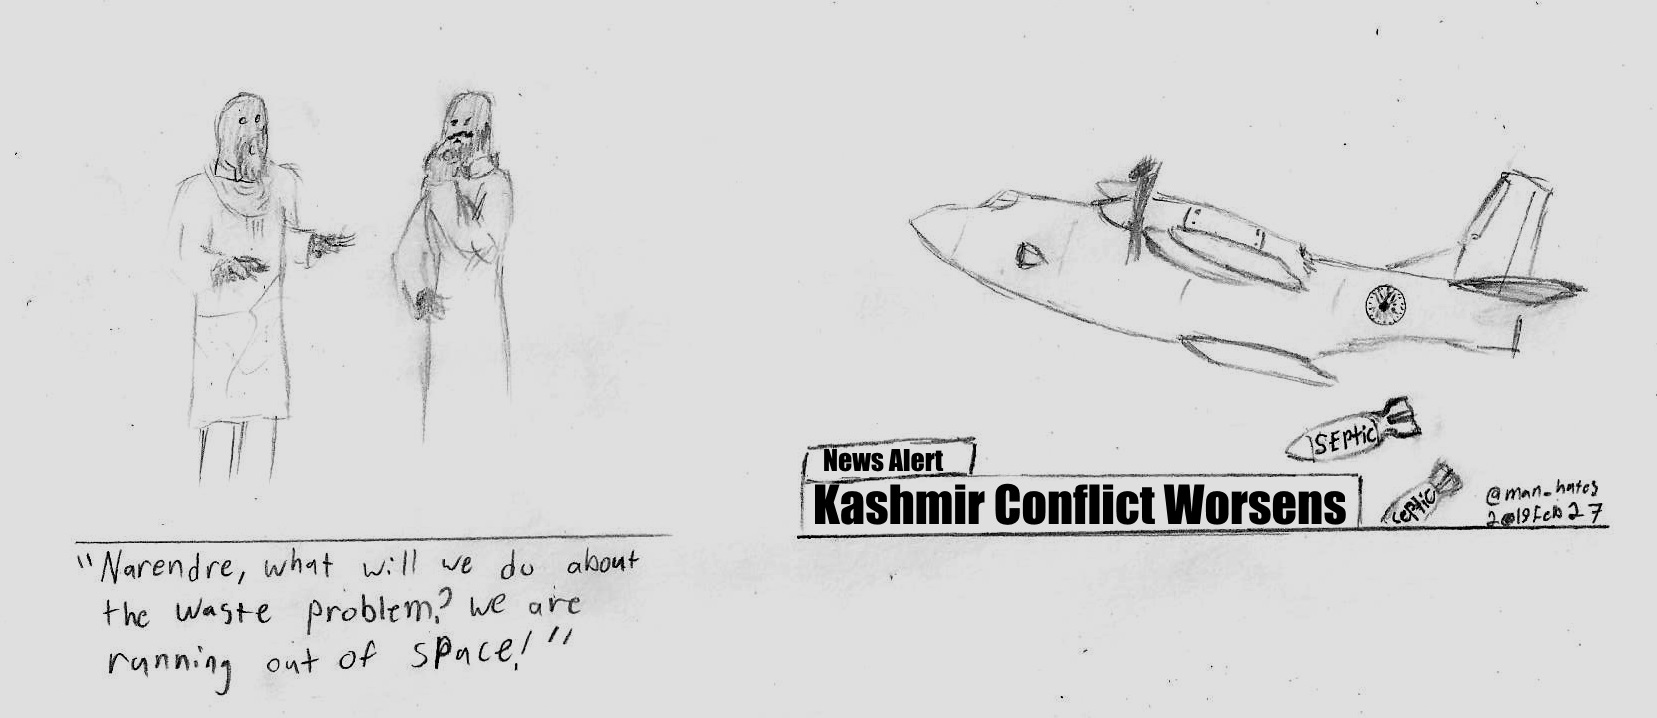 "Narendre, what will we do about
the waste problem? we are
running out of space!"
News Alert
Kashmir Conflict Worsens
SEPtic
septic
@man_hates
2019Feb27